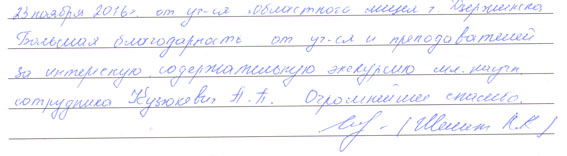 23 ноября 2016г. от уч-ся областного лицея г Дзержинска
Большая благодарность от уч-ся и преподавателей
за интересную, содержательную экскурсию мл. научн.
сотрудника Кузюкевич А.А. Огромнейшее спасибо.